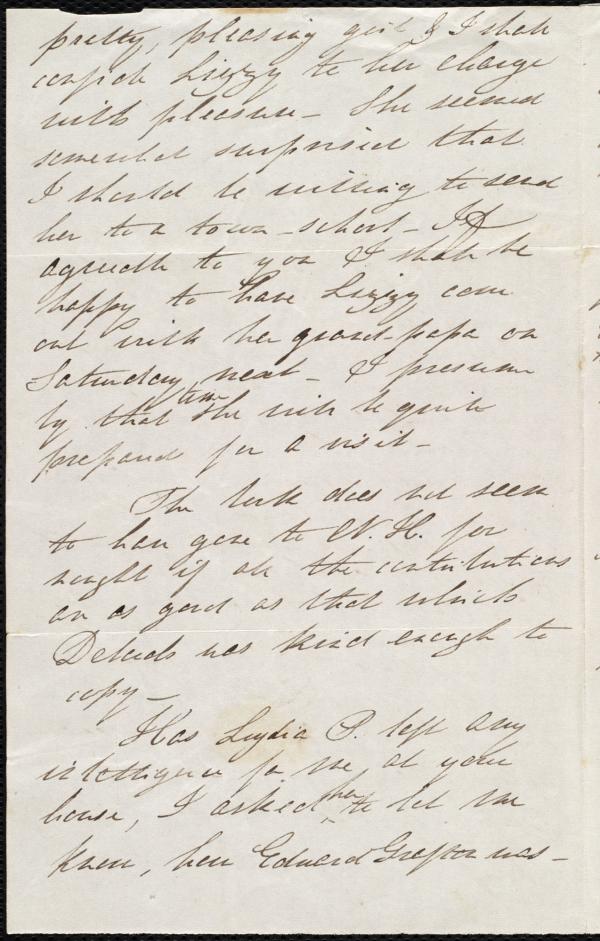 pretty, pleasing girl & I shall
confide Lizzy to her charge
with pleasure - She seemed
somewhat surprised that
I should be willing to send
her to a town-school - If
agreeable to you I shall be
happy to have Lizzy come
out with her grand-papa on
Saturday next - I presume
by that time she will be quite
prepared for a visit -
The book does not seem
to have gone to N. H. for
nought if all the contributions
are as good as that which
Deborah was kind enough to
copy -
Has Lydia P. left any
intelligence for me at your
house, I asked her to let me
know, how Edward Grafton was -